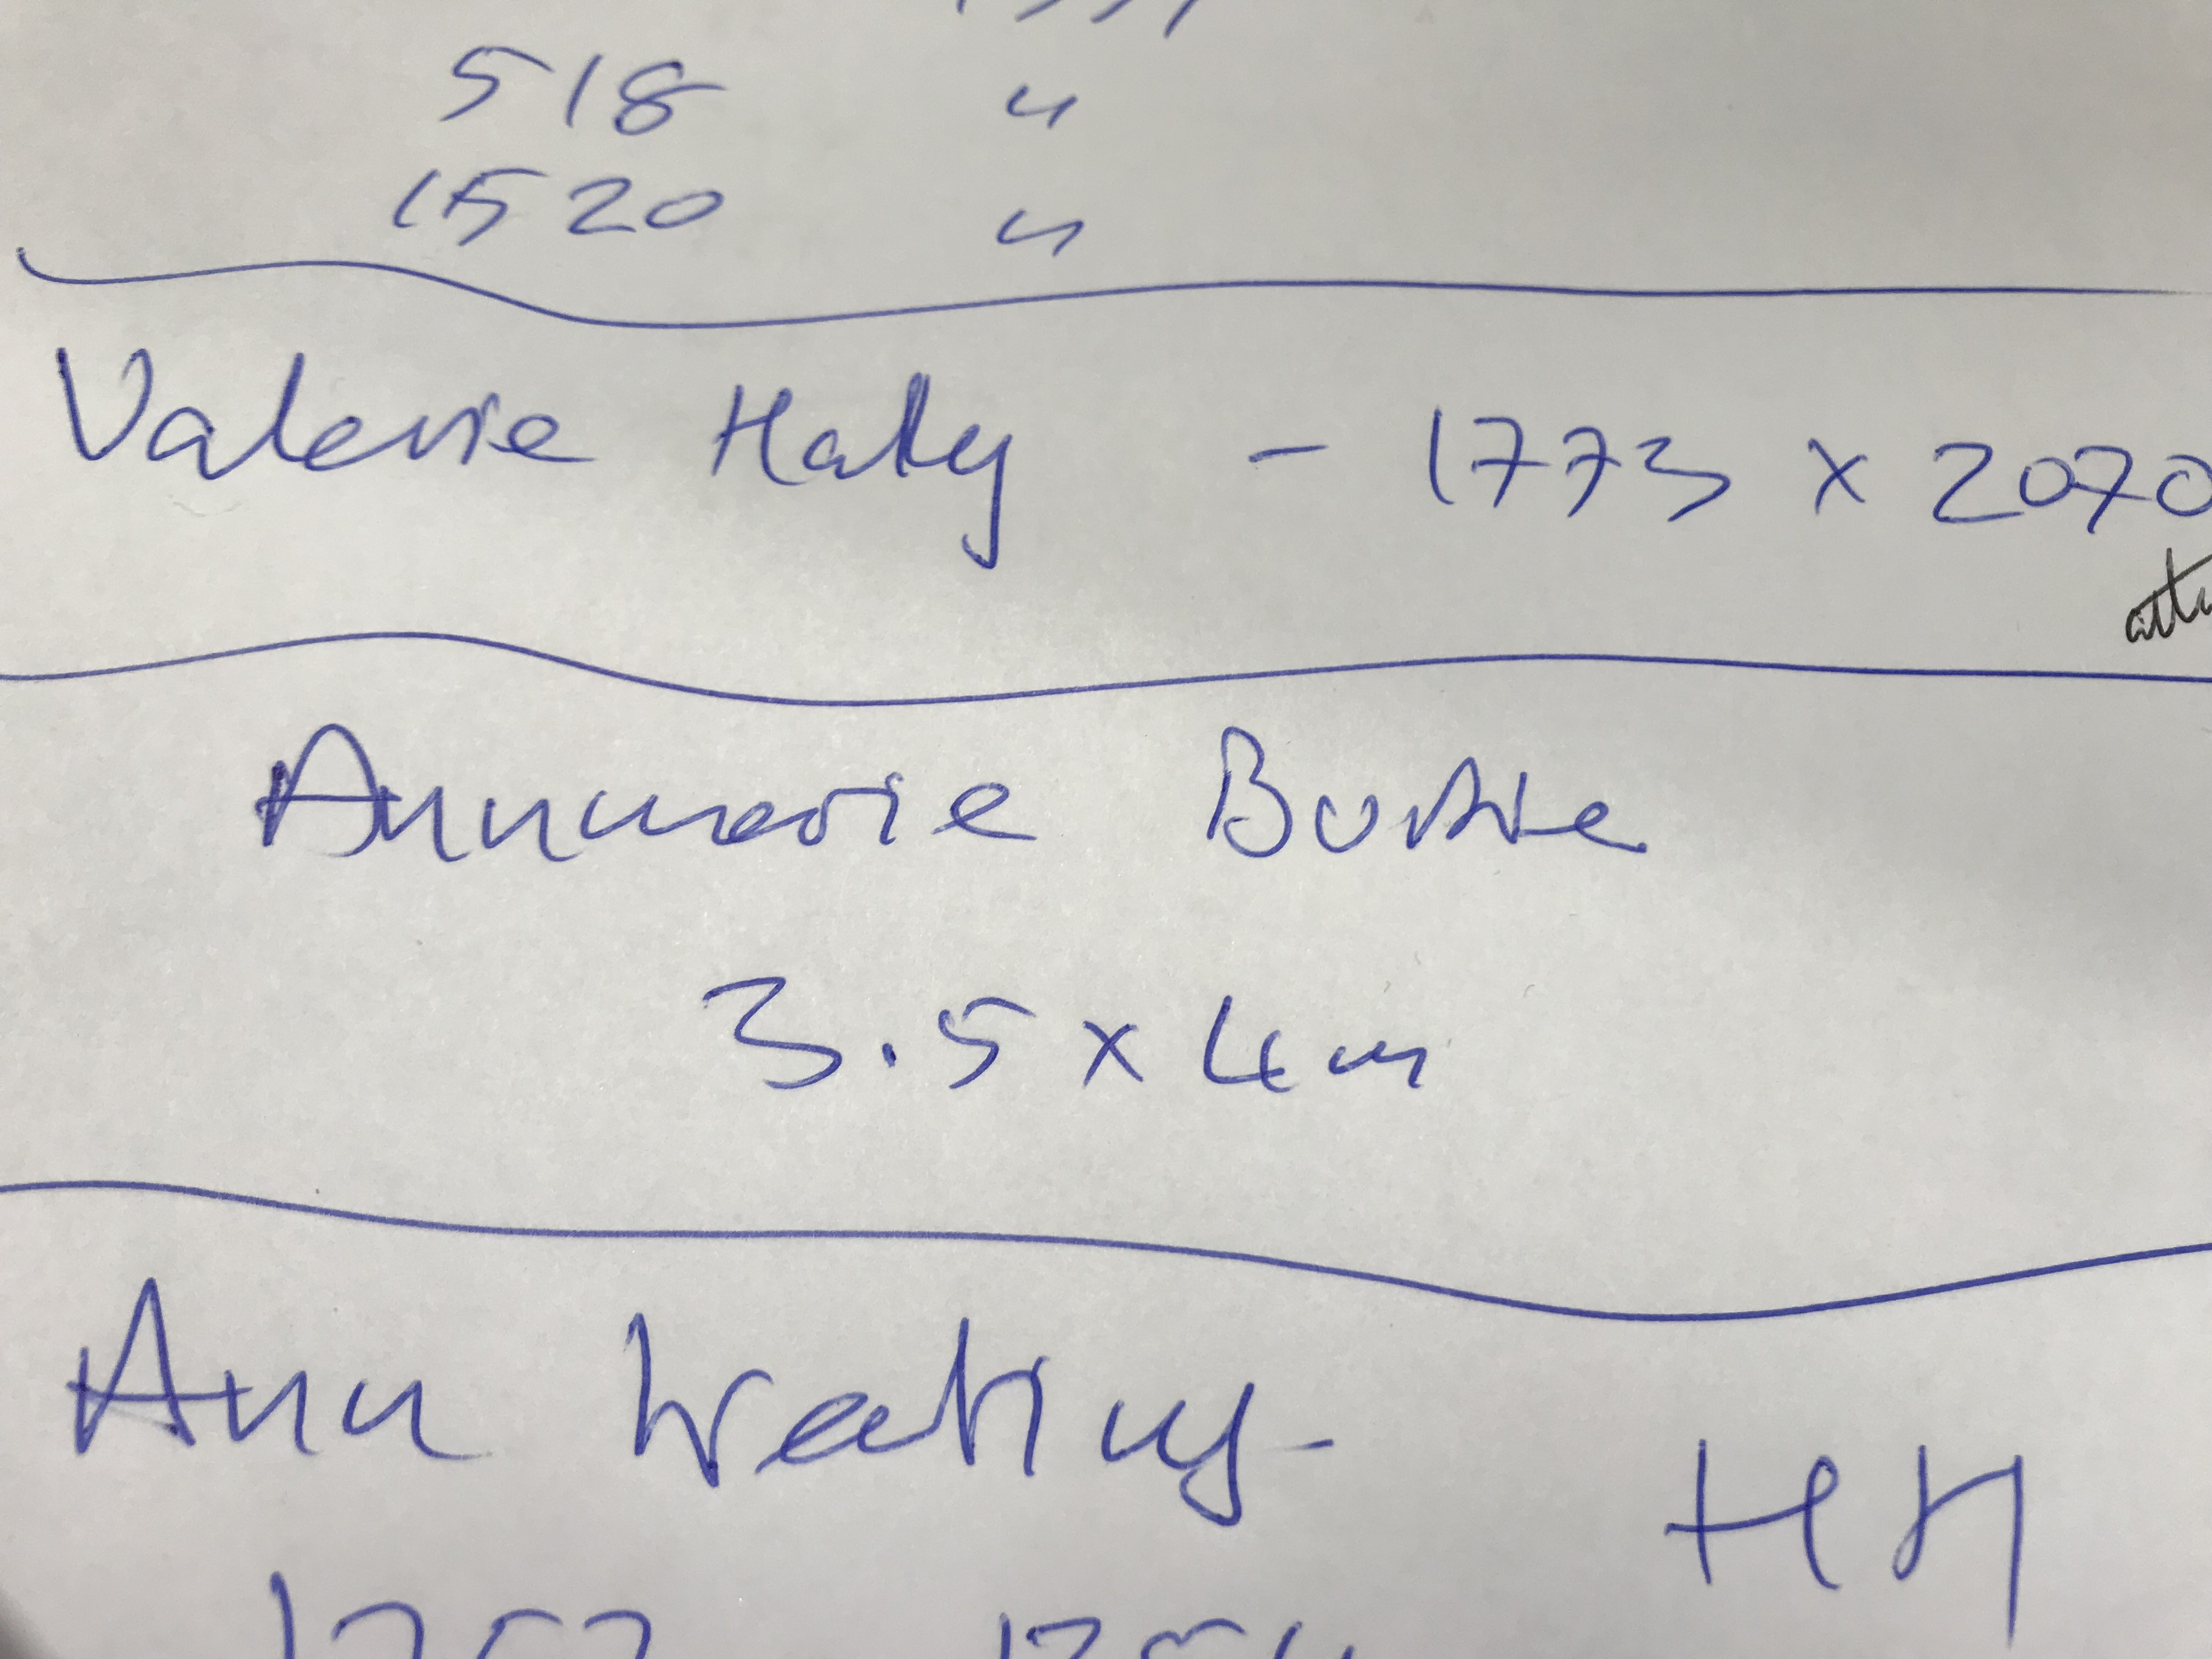 518 "
1520 "
Valerie Hally - 1773 x 2070
Annmarie Burke
3.5 x 4m
Ann Keating -
HH